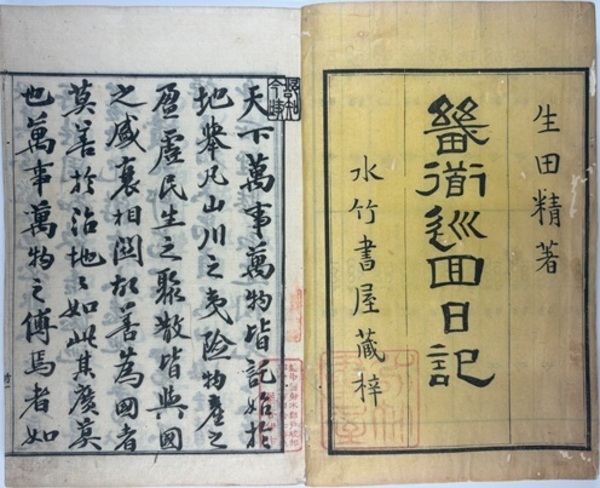 生田精著
畿道巡回日記
水竹書屋蔵梓
天下萬事萬物皆託始於
地舉凡山川之夷險物產之
盈虛民生之聚散皆與國
之盛衰相關故善為國者
莫善於治地地如此其廣莫
也萬事萬物之傅焉者如